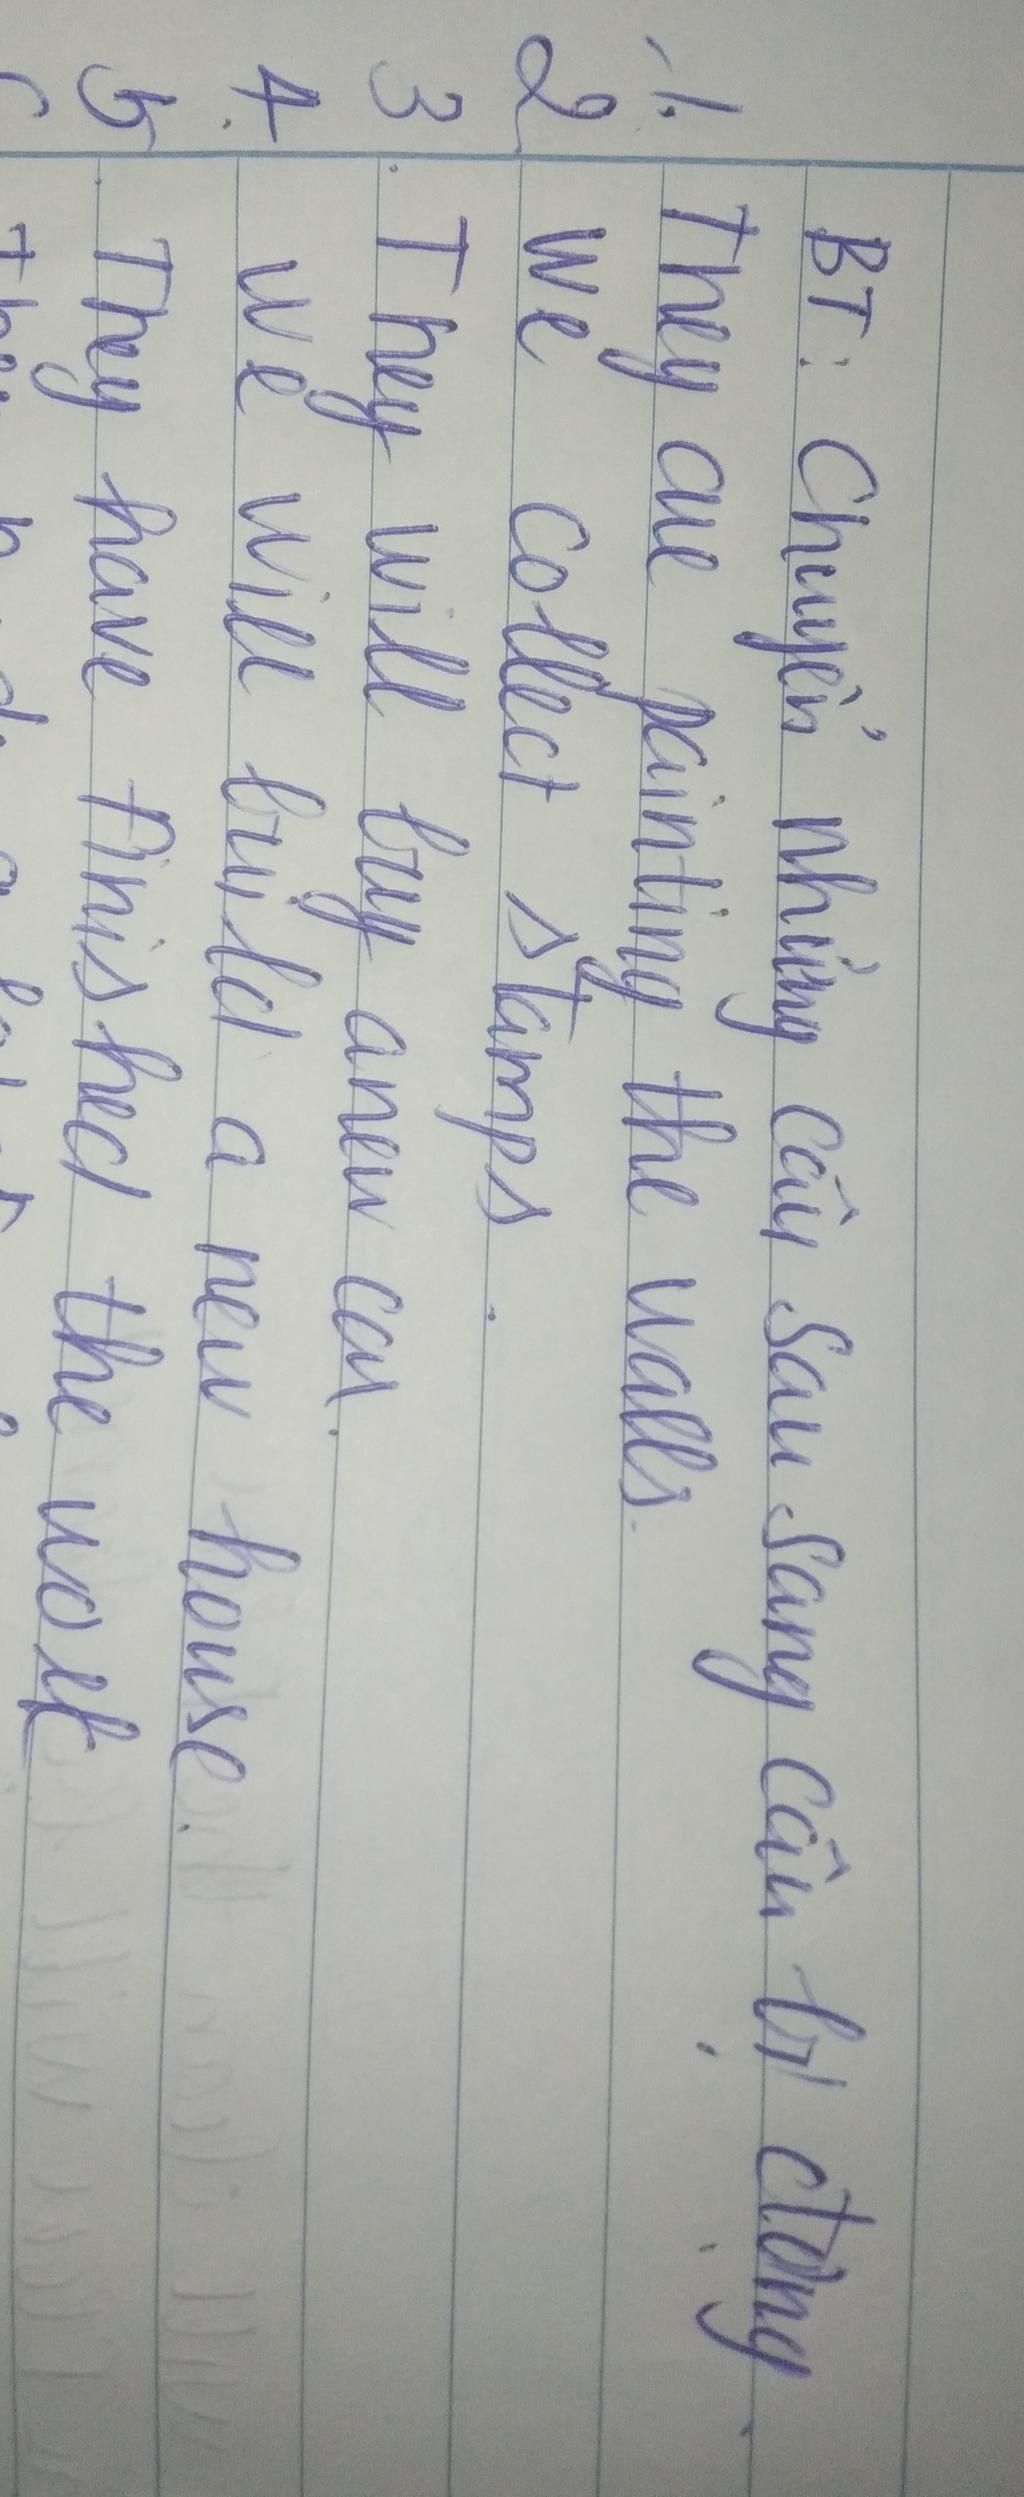 BT: Chuyển những câu sau sang câu bị động.
1. They are painting the walls.
2 we collect stamps.
3. They will buy a new car.
4. we will build a new house.
5. They have finished the work